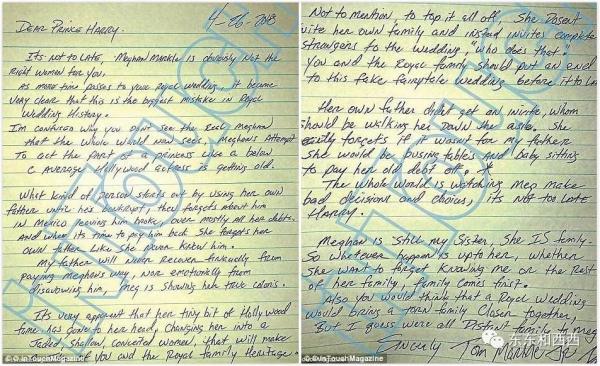 4-26-2018
DEAR PRINCE HARRY,
It's not to late, Meghan Markle is obviously not the
right woman for you.
As more time passes to your royal wedding, it became
very clear that this is the biggest mistake in royal
wedding History.
I'm confused why you don't see the real Meghan
that the whole world now sees, Meghan's Attempt
to act the part of a princess like a below
C average Hollywood actress is getting old.
What kind of person starts out by using her own
father until he's bankrupt, then forgets about him
in Mexico leaving him broke, over mostly all her debts.
And when it's time to pay him back she forgets her
own father like she never knew him.
My father will never recover financially from
paying Meghan's way, nor emotionally from
disavowing him, Meg is showing her true colors.
It's very apparent that her tiny bit of Hollywood
fame has gone to her head, changing her into a
Jaded, shallow, conceited woman, that will make
of you and the Royal family Heritage.
© InTouchMagazine
Not to mention, to top it all off, she dosent
invite her own family and instead invites complete
strangers to the wedding, "who does that".
you and the Royal family should put an end
to this fake fairytale wedding before it's to late
Her own father didnt get an invite, whom
should be walking her down the aisle. She
easily forgets if it wasnt for my father
she would be busing tables and baby sitting
to pay her old debt of.
The whole world is watching Meg make
bad decisions and choices, its not too late
HARRY.
Meghan is still my Sister, she IS family.
So whatever happen is up to her, whether
she want to forget knowing me or the rest
of her family, family comes first.
Also you would think that a Royal wedding
would bring a torn family closer together,
But I guess were all Distant family to Meg
Sincerly Tom Markle Jr
© InTouchMagazine
东东和西西